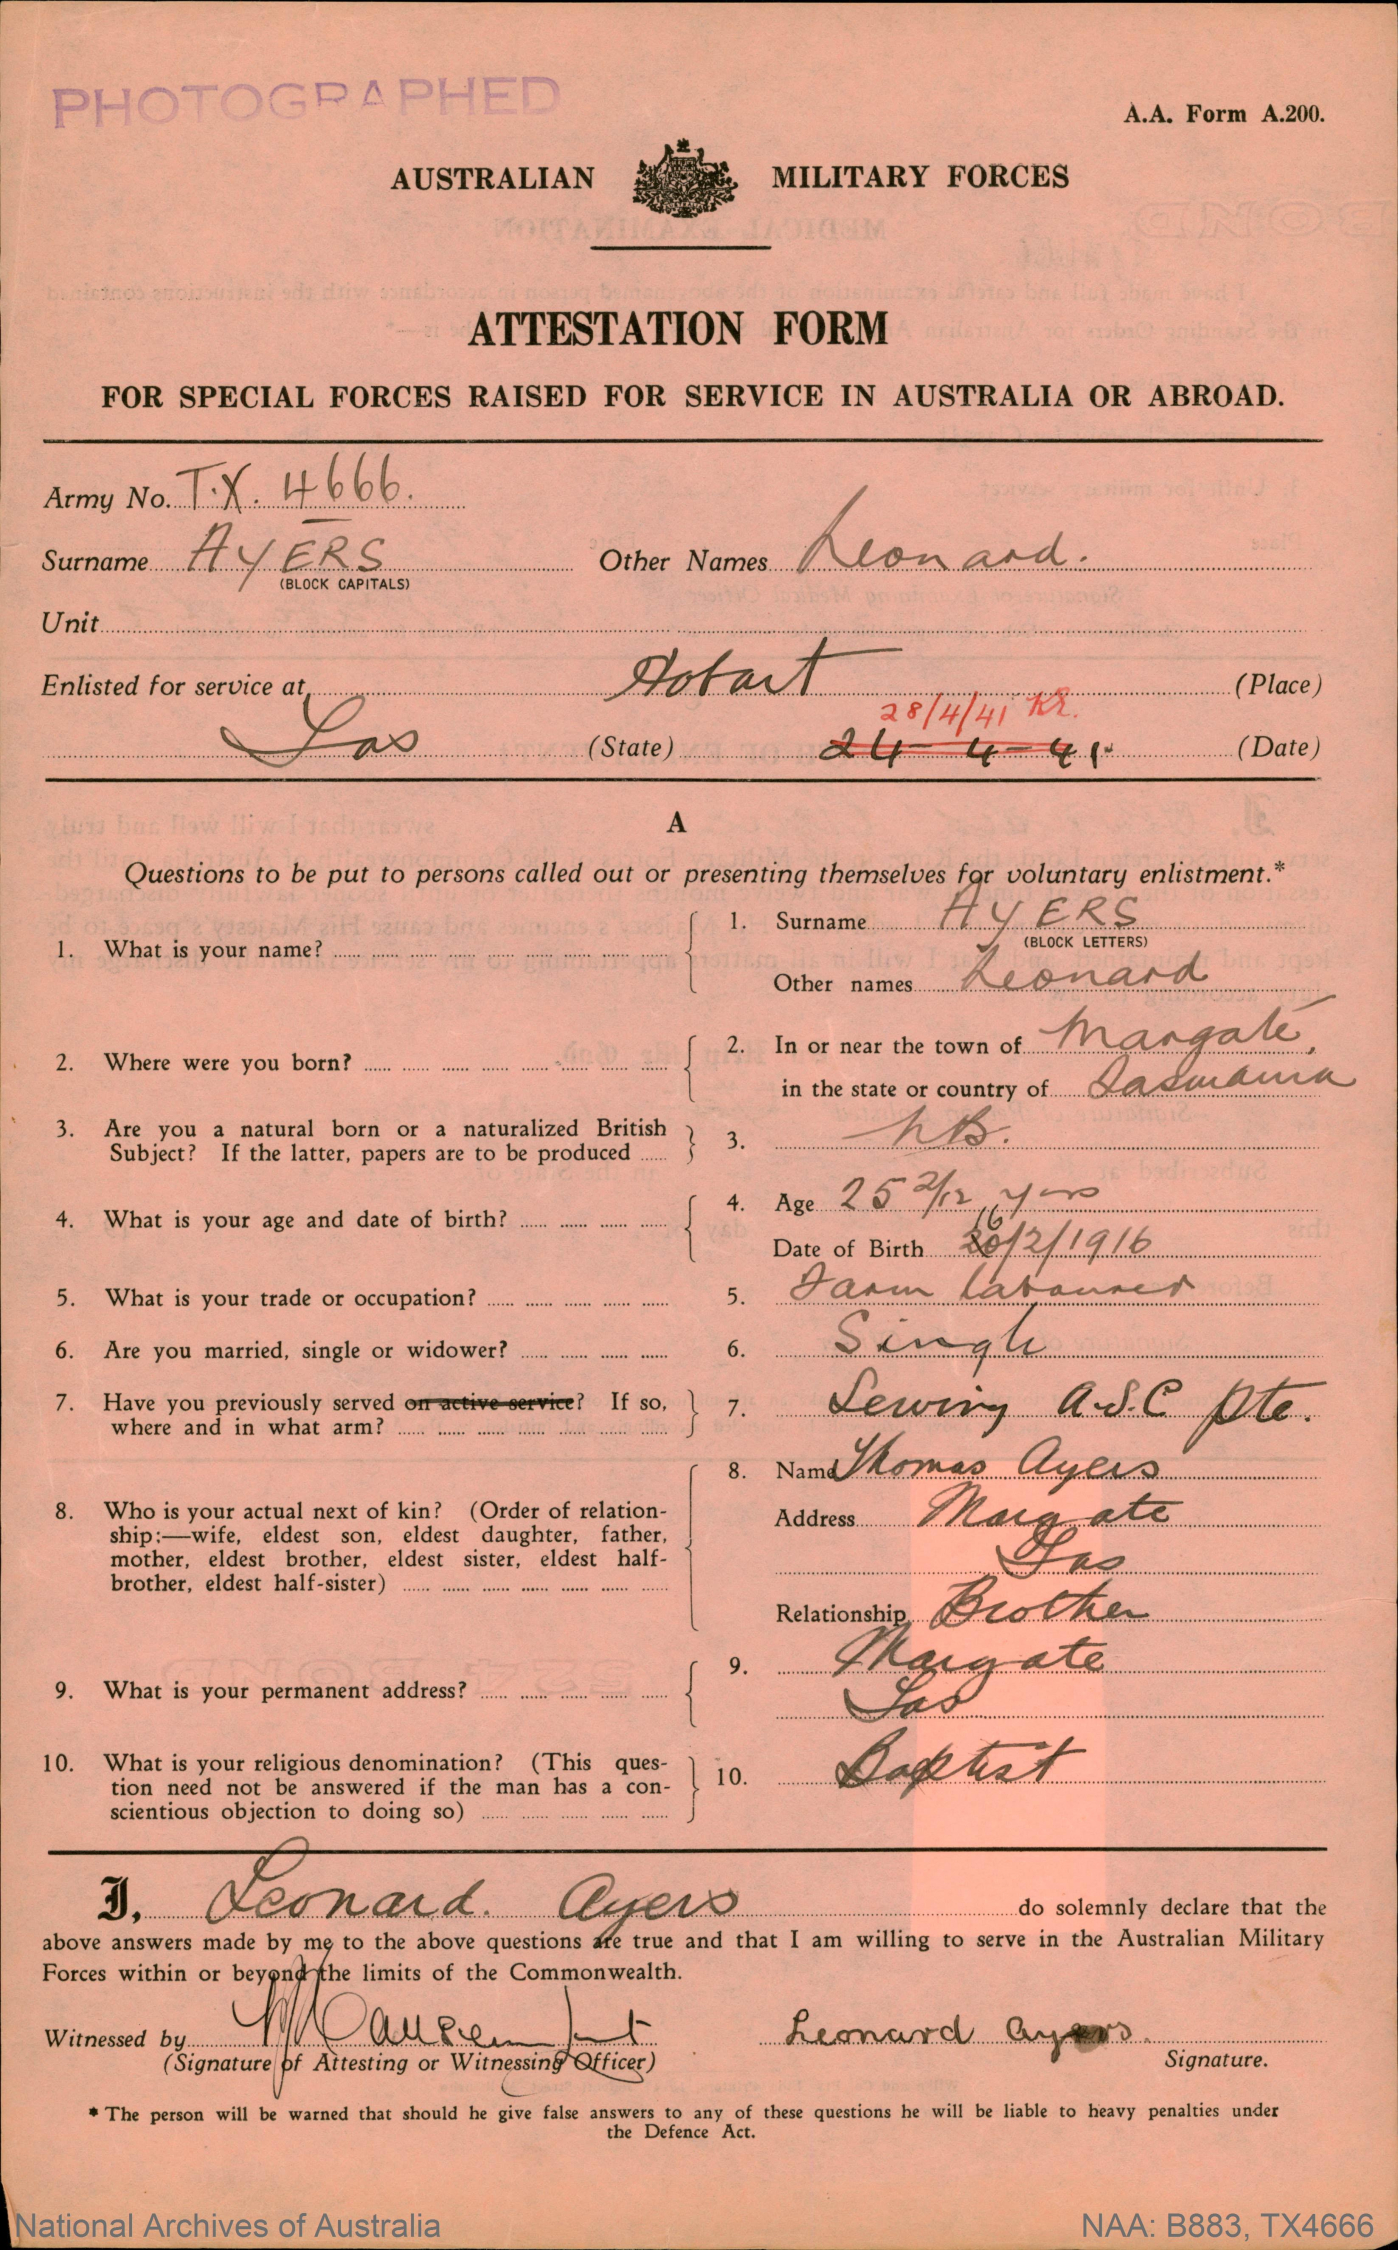 PHOTOGRAPHED
A.A. Form A.200.
AUSTRALIAN MILITARY FORCES
ATTESTATION FORM
FOR SPECIAL FORCES RAISED FOR SERVICE IN AUSTRALIA OR ABROAD.
Army No. T.X. 4666.
Surname AYERS Other Names Leonard.
(BLOCK CAPITALS)
Unit
Enlisted for service at Hobart (Place)
28/4/41
Tas (State) 24-4-41. (Date)
A
Questions to be put to persons called out or presenting themselves for voluntary enlistment.*
1. What is your name? 1. Surname AYERS
(BLOCK LETTERS)
Other names Leonard
2. Where were you born? 2. In or near the town of Margate,
in the state or country of Tasmania
3. Are you a natural born or a naturalized British
Subject? If the latter, papers are to be produced 3. NB.
4. What is your age and date of birth? 4. Age 25 2/12 yrs
Date of Birth 16/2/1916
5. What is your trade or occupation? 5. Farm Labourer
6. Are you married, single or widower? 6. Single
7. Have you previously served on active service? If so,
where and in what arm? 7. Serving A.S.C Pte.
8. Who is your actual next of kin? (Order of relation-
ship:—wife, eldest son, eldest daughter, father,
mother, eldest brother, eldest sister, eldest half-
brother, eldest half-sister)
8. Name Thomas Ayers
Address Margate
Tas
Relationship Brother
9. What is your permanent address? 9. Margate
Tas
10. What is your religious denomination? (This ques-
tion need not be answered if the man has a con-
scientious objection to doing so) 10. Baptist
I, Leonard. Ayers do solemnly declare that the
above answers made by me to the above questions are true and that I am willing to serve in the Australian Military
Forces within or beyond the limits of the Commonwealth.
Witnessed by Leonard Ayers.
(Signature of Attesting or Witnessing Officer) Signature.
* The person will be warned that should he give false answers to any of these questions he will be liable to heavy penalties under
the Defence Act.
National Archives of Australia NAA: B883, TX4666